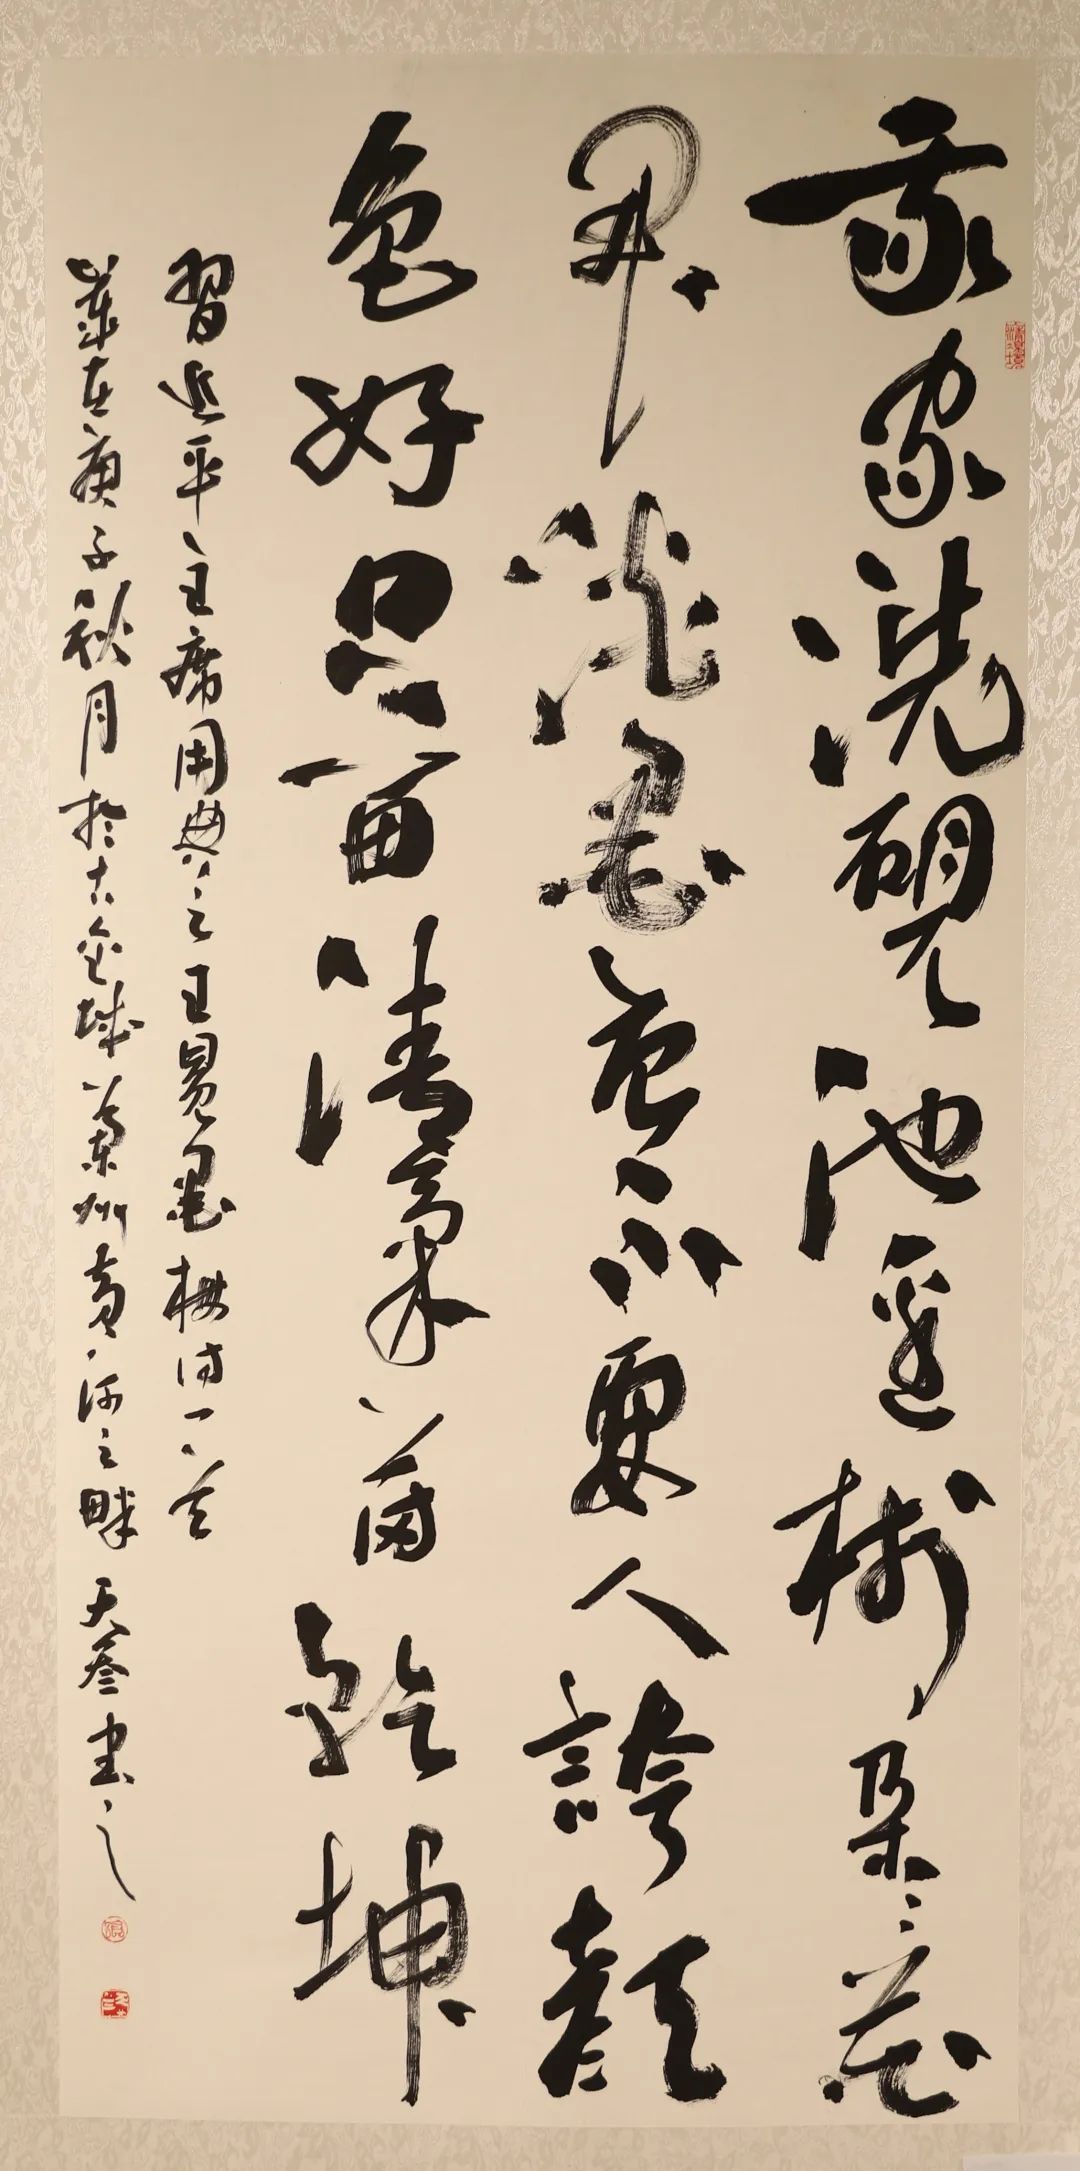 我家洗硯池邊樹朵朵花
開淡墨痕不要人誇顏
色好只留清氣滿乾坤
習近平主席用典之王冕墨梅詩一首
歲在庚子秋月於古金城蘭州黃河之畔天叁書之